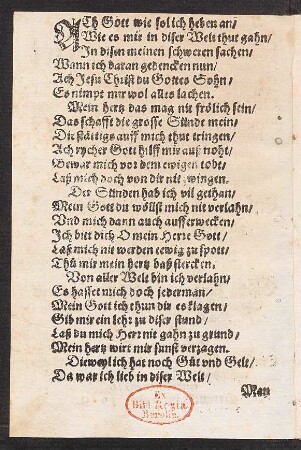 ACh Gott wie sol ich heben an/
Wie es mir in diser Welt thut gahn/
In disen meinen schweren sachen/
Wann ich daran gedencken nun/
Ach Jesu Christ du Gottes Sohn/
Es nimpt mir wol alles lachen.
Mein hertz das mag nit frölich sein/
Das schafft die grosse Sünde mein/
Die stättigs auff mich thut tringen/
Ach rycher Gott hilff mir auß noht/
Bewar mich vor dem ewigen todt/
Laß mich doch von dir nit zwingen.
Der Sünden hab ich vil gethan/
Mein Gott du wöllst mich nit verlahn/
Vnd mich dann auch aufferwecken/
Ich bitt dich O mein Herre Gott/
Laß mich nit werden ewig zu spott/
Thů mir mein hertz baß stercken.
Von aller Welt bin ich verlahn/
Es hasset mich doch jederman/
Mein Gott ich thun dir es klagen/
Gib mir ein lehr zu diser stund/
Laß du mich Herr nit gahn zu grund/
Mein hertz wirt mir sunst verzagen.
Dieweyl ich hat noch Gůt vnd Gelt/
Da war ich lieb in diser Welt/
Man
Ex
Bibl. Regia
Berolin.